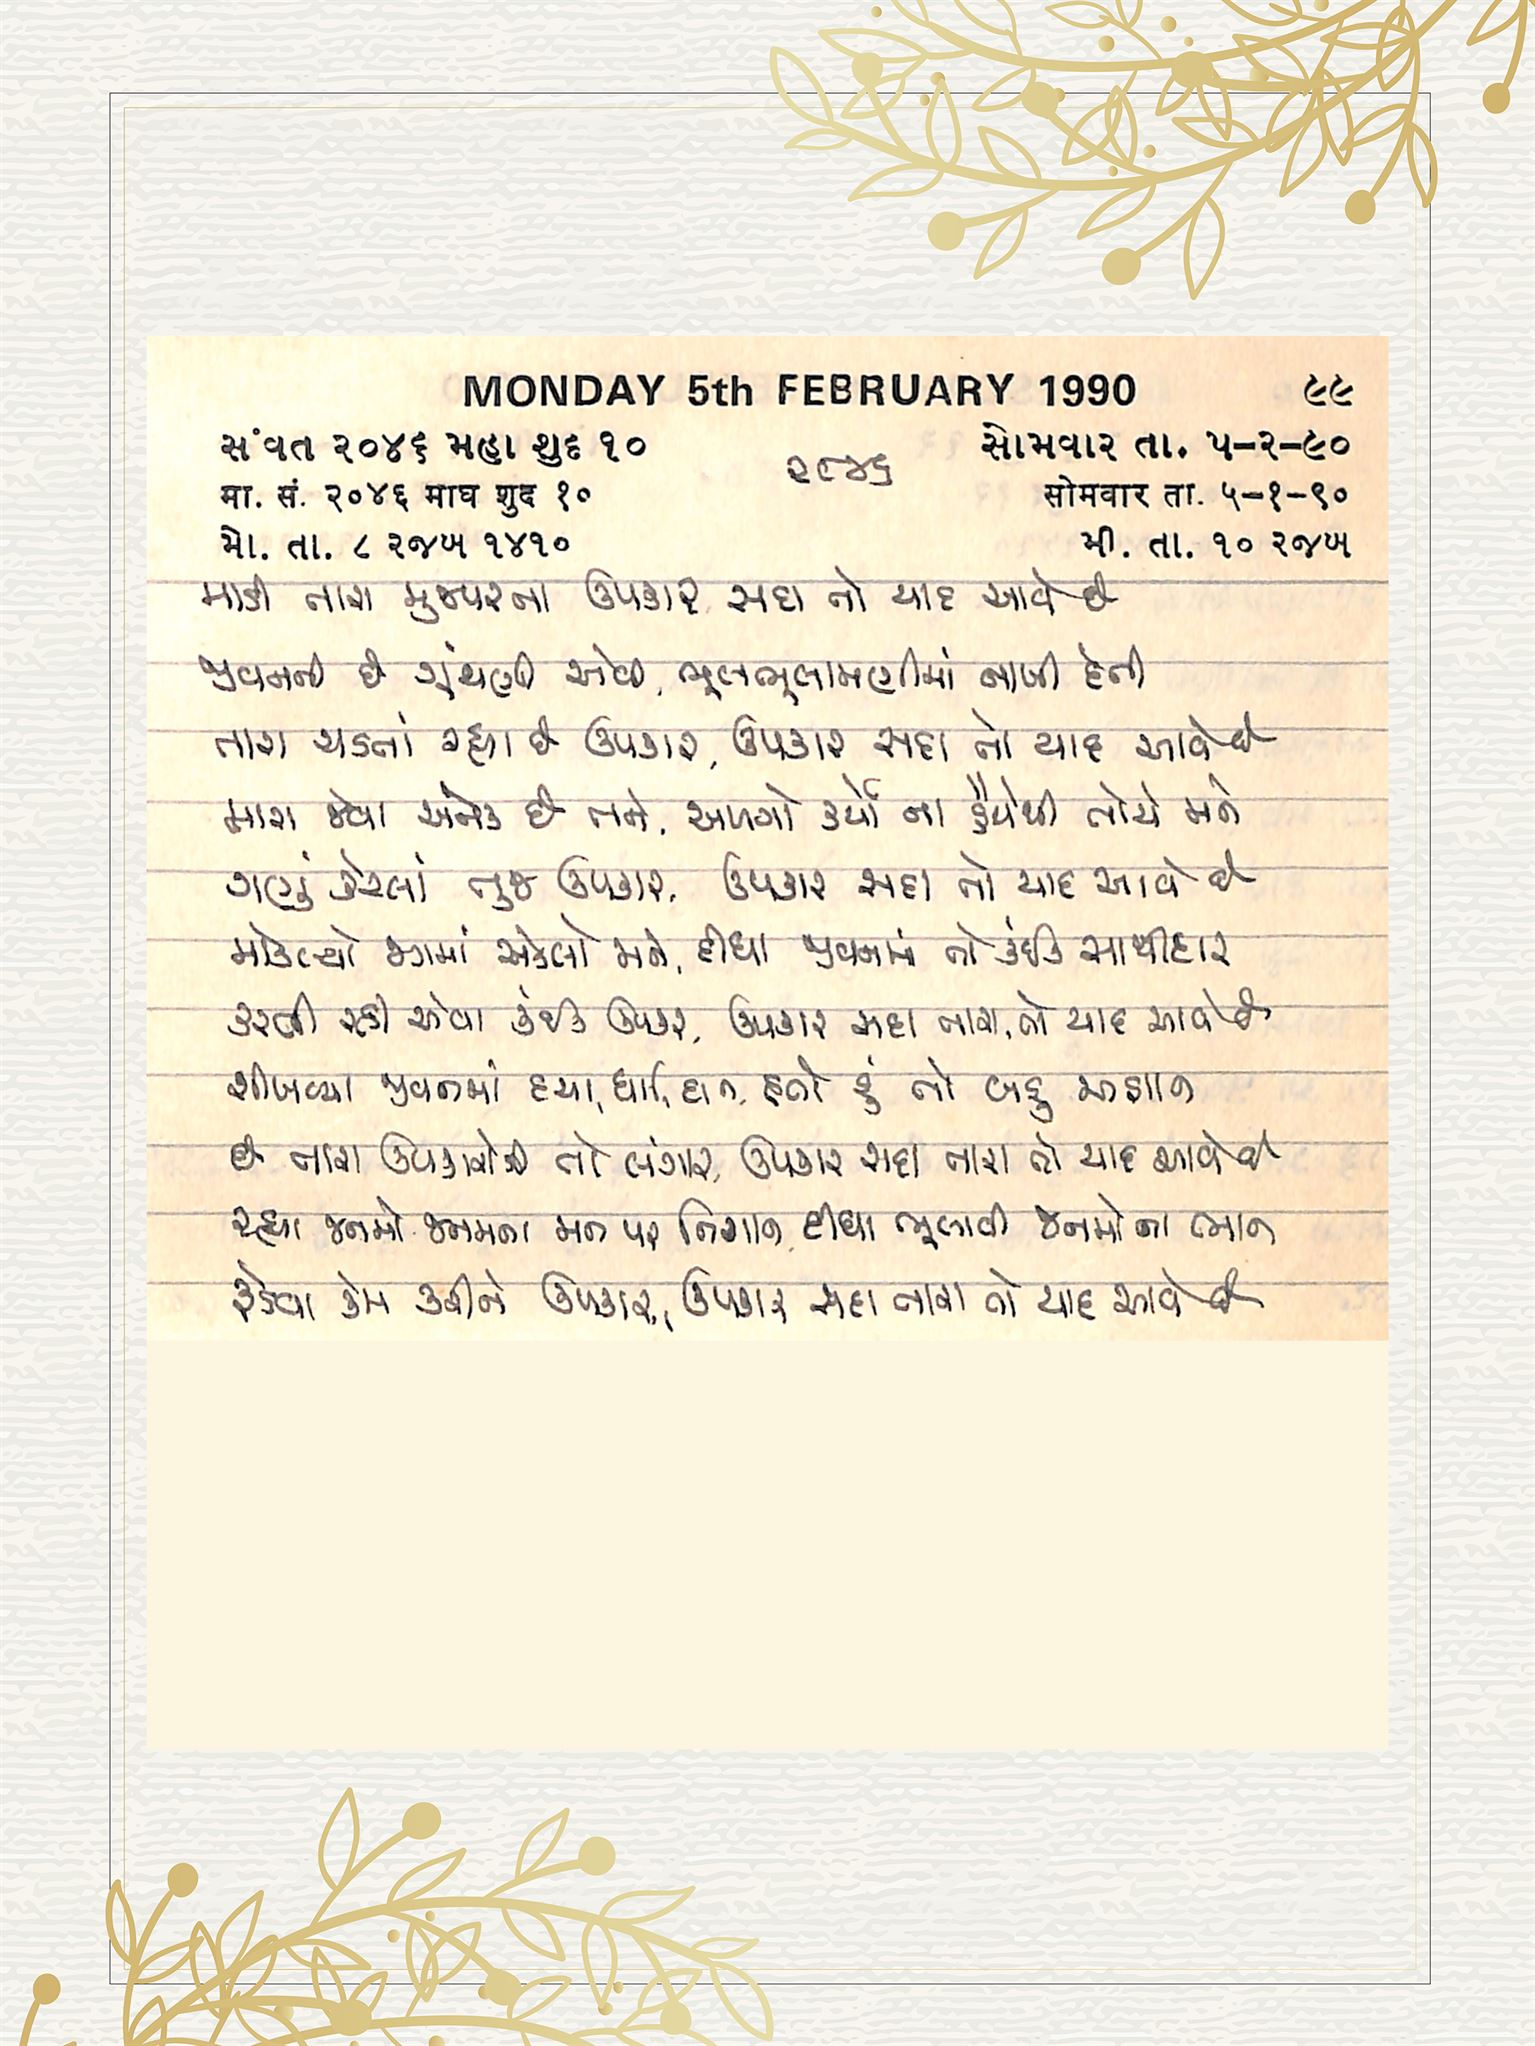 MONDAY 5th FEBRUARY 1990 ૯૯
સંવત ૨૦૪૬ મહા શુદ ૧૦ સોમવાર તા. ૫-૨-૯૦
૨૯૪૬
मा. सं. २०४६ माघ शुद १० सोमवार ता. ५-१-९०
મો. તા. ૮ રજબ ૧૪૧૦ મી. તા. ૧૦ રજબ
માડી તારા મુજપરના ઉપકાર સદા તો યાદ આવે છે
જીવનની છે ગૂંથણી એવી, ભૂલભૂલામણીમાં નાખી દેતી
તારા ચડતાં રહ્યા છે ઉપકાર, ઉપકાર સદા તો યાદ આવે છે
મારા જેવા અનેક છે તને, અળગો કર્યો ના હૈયેથી તોયે મને
ગણું કેટલાં તુજ ઉપકાર, ઉપકાર સદા તો યાદ આવે છે
મોકલ્યો જગમાં એકલો મને, દીધા જીવનમાં તો કંઈક સાથીદાર
કરતી રહી એવા કંઈક ઉપકાર, ઉપકાર સદા તારા, તો યાદ આવે છે
શીખવ્યા જીવનમાં દયા, ધર્મ, દાન, હતો હું તો બહુ અજ્ઞાન
છે તારા ઉપકારોની તો લંગાર, ઉપકાર સદા તારા તો યાદ આવે છે
રહ્યા જનમો જનમના મન પર નિશાન, દીધા ભૂલાવી જનમોના ભાન
કેવા કેમ કરીને ઉપકાર, ઉપકાર સદા તારા તો યાદ આવે છે